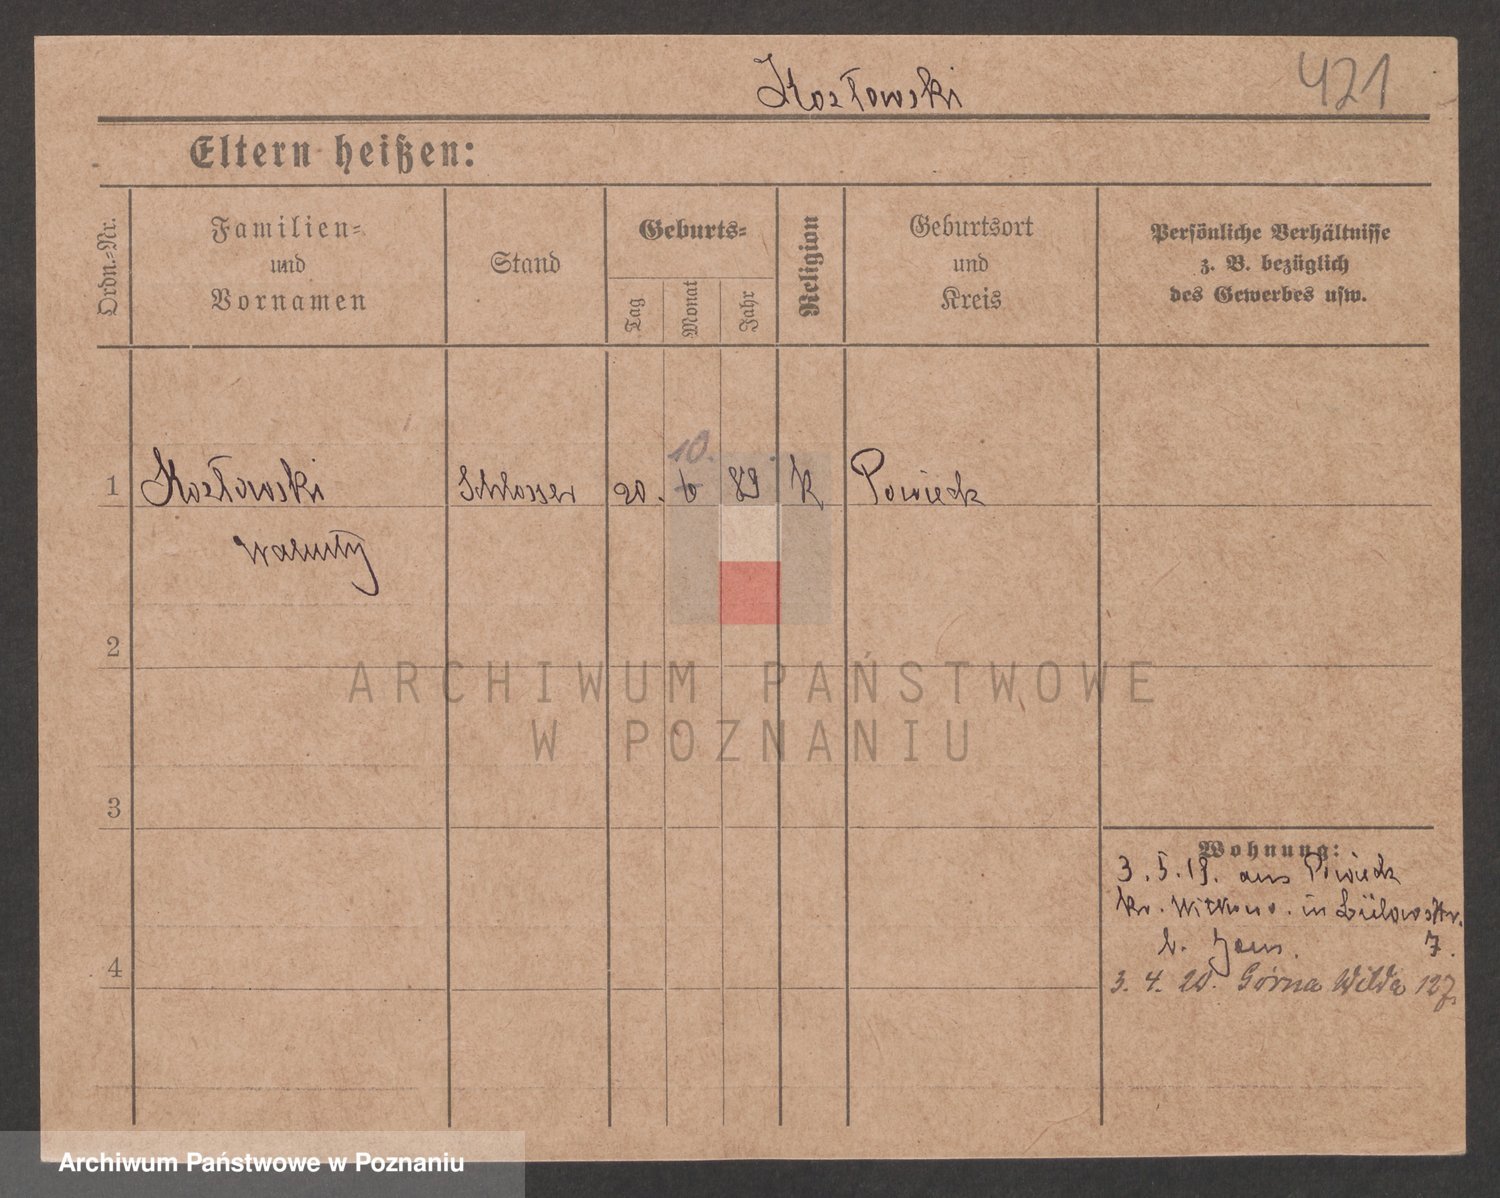 Kozłowski
421
Eltern heißen:
Ordn.-Nr.
Familien-
und
Vornamen
Stand
Geburts-
Tag
Monat
Jahr
Religion
Geburtsort
und
Kreis
Persönliche Verhältnisse
z. B. bezüglich
des Gewerbes usw.
10.
1 Kozłowski Schlosser 20. 6 89 k Powiedz
Walenty
2
ARCHIWUM PAŃSTWOWE
W POZNANIU
3
Wohnung:
3.5.19. aus Powiedz
Kr. Witkowo. in Bülowstr.
b. 7.
4
3. 4. 20. Górna Wilda 127.
Archiwum Państwowe w Poznaniu